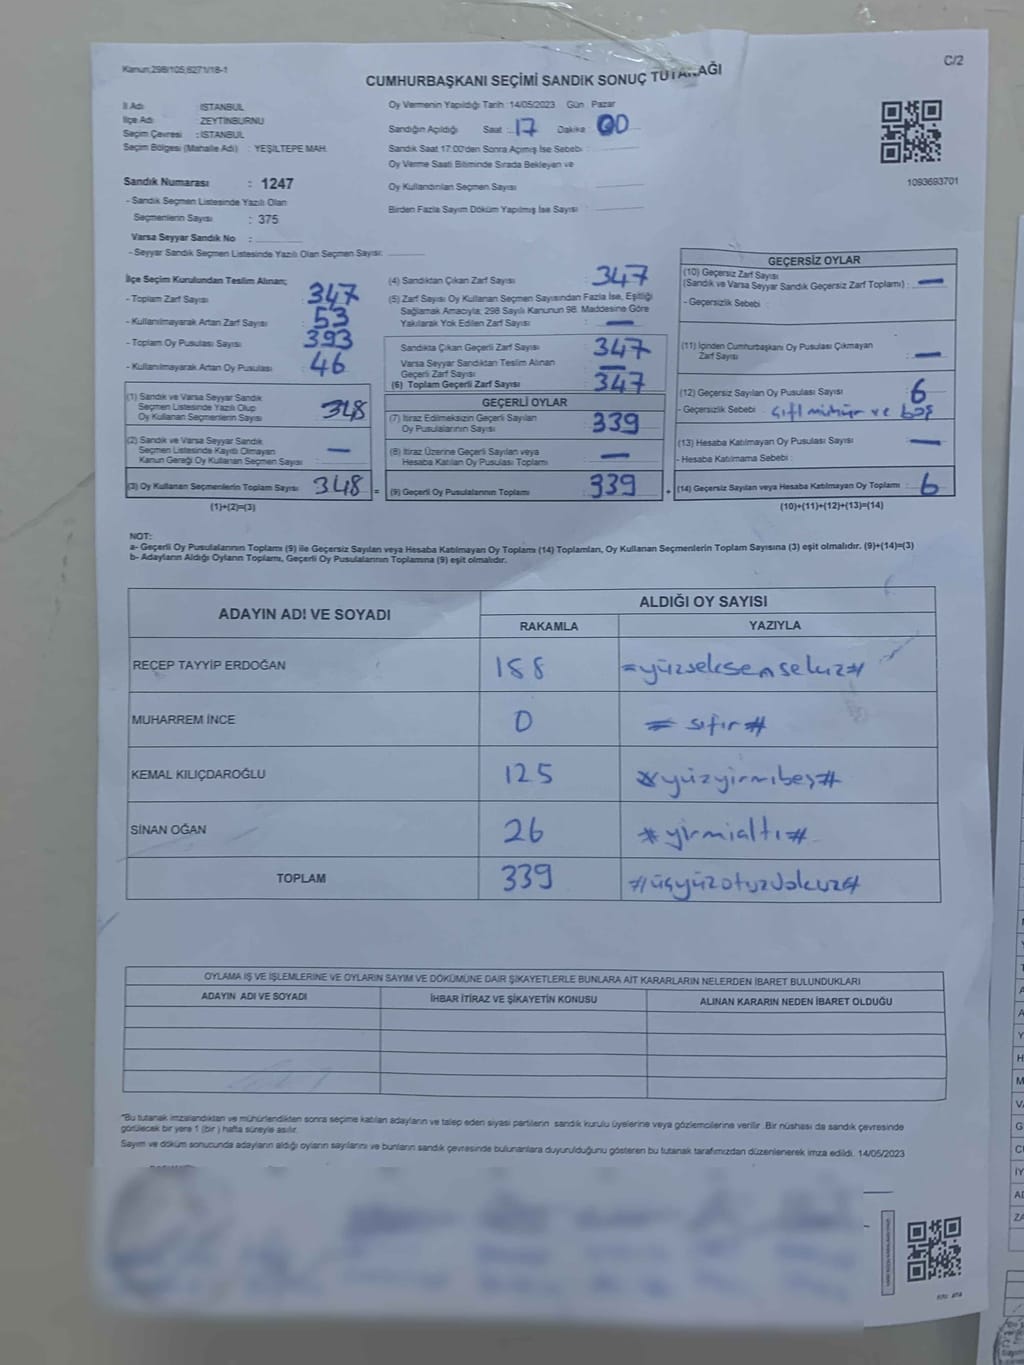 Kanun;298/105;6271/18-1
C/2
CUMHURBAŞKANI SEÇİMİ SANDIK SONUÇ TUTANAĞI
İl Adı : İSTANBUL
İlçe Adı : ZEYTİNBURNU
Seçim Çevresi : İSTANBUL
Seçim Bölgesi (Mahalle Adı) : YEŞİLTEPE MAH.
Oy Vermenin Yapıldığı Tarih :14/05/2023 Gün : Pazar
Sandığın Açıldığı Saat : 17 Dakika : 00
Sandık Saat 17:00'den Sonra Açımış İse Sebebi :
Oy Verme Saati Bitiminde Sırada Bekleyen ve
Oy Kullandırılan Seçmen Sayısı :
Birden Fazla Sayım Döküm Yapılmış İse Sayısı :
1093693701
Sandık Numarası : 1247
- Sandık Seçmen Listesinde Yazılı Olan
Seçmenlerin Sayısı : 375
Varsa Seyyar Sandık No :
- Seyyar Sandık Seçmen Listesinde Yazılı Olan Seçmen Sayısı:
İlçe Seçim Kurulundan Teslim Alınan;
- Toplam Zarf Sayısı : 347
- Kullanılmayarak Artan Zarf Sayısı : 53
- Toplam Oy Pusulası Sayısı : 393
- Kullanılmayarak Artan Oy Pusulası : 46
(1) Sandık ve Varsa Seyyar Sandık
Seçmen Listesinde Yazılı Olup
Oy Kullanan Seçmenlerin Sayısı : 348
(2) Sandık ve Varsa Seyyar Sandık
Seçmen Listesinde Kayıtlı Olmayan
Kanun Gereği Oy Kullanan Seçmen Sayısı : —
(3) Oy Kullanan Seçmenlerin Toplam Sayısı : 348 =
(1)+(2)=(3)
(4) Sandıktan Çıkan Zarf Sayısı : 347
(5) Zarf Sayısı Oy Kullanan Seçmen Sayısından Fazla İse, Eşitliği
Sağlamak Amacıyla; 298 Sayılı Kanunun 98. Maddesine Göre
Yakılarak Yok Edilen Zarf Sayısı : —
Sandıkta Çıkan Geçerli Zarf Sayısı : 347
Varsa Seyyar Sandıktan Teslim Alınan
Geçerli Zarf Sayısı : —
(6) Toplam Geçerli Zarf Sayısı : 347
GEÇERLİ OYLAR
(7) İtiraz Edilmeksizin Geçerli Sayılan
Oy Pusulalarının Sayısı : 339
(8) İtiraz Üzerine Geçerli Sayılan veya
Hesaba Katılan Oy Pusulası Toplamı : —
(9) Geçerli Oy Pusulalarının Toplamı : 339 +
GEÇERSİZ OYLAR
(10) Geçersiz Zarf Sayısı
(Sandık ve Varsa Seyyar Sandık Geçersiz Zarf Toplamı) : —
- Geçersizlik Sebebi :
(11) İçinden Cumhurbaşkanı Oy Pusulası Çıkmayan
Zarf Sayısı : —
(12) Geçersiz Sayılan Oy Pusulası Sayısı : 6
- Geçersizlik Sebebi : çift mühür ve boş
(13) Hesaba Katılmayan Oy Pusulası Sayısı : —
- Hesaba Katılmama Sebebi :
(14) Geçersiz Sayılan veya Hesaba Katılmayan Oy Toplamı : 6
(10)+(11)+(12)+(13)=(14)
NOT:
a- Geçerli Oy Pusulalarının Toplamı (9) ile Geçersiz Sayılan veya Hesaba Katılmayan Oy Toplamı (14) Toplamları, Oy Kullanan Seçmenlerin Toplam Sayısına (3) eşit olmalıdır. (9)+(14)=(3)
b- Adayların Aldığı Oyların Toplamı, Geçerli Oy Pusulalarının Toplamına (9) eşit olmalıdır.
ADAYIN ADI VE SOYADI
ALDIĞI OY SAYISI
RAKAMLA YAZIYLA
RECEP TAYYİP ERDOĞAN 188 =yüzseksensekiz#
MUHARREM İNCE 0 = sıfır #
KEMAL KILIÇDAROĞLU 125 #yüzyirmibeş#
SİNAN OĞAN 26 # yirmialtı #
TOPLAM 339 #üçyüzotuzdokuz#
OYLAMA İŞ VE İŞLEMLERİNE VE OYLARIN SAYIM VE DÖKÜMÜNE DAİR ŞİKAYETLERLE BUNLARA AİT KARARLARIN NELERDEN İBARET BULUNDUKLARI
ADAYIN ADI VE SOYADI İHBAR İTİRAZ VE ŞİKAYETİN KONUSU ALINAN KARARIN NEDEN İBARET OLDUĞU
*Bu tutanak imzalandıktan ve mühürlendikten sonra seçime katılan adayların ve talep eden siyasi partilerin sandık kurulu üyelerine veya gözlemcilerine verilir. Bir nüshası da sandık çevresinde
görülecek bir yere 1 (bir) hafta süreyle asılır.
Sayım ve döküm sonucunda adayların aldığı oyların sayılarını ve bunların sandık çevresinde bulunanlara duyurulduğunu gösteren bu tutanak tarafımızdan düzenlenerek imza edildi. 14/05/2023